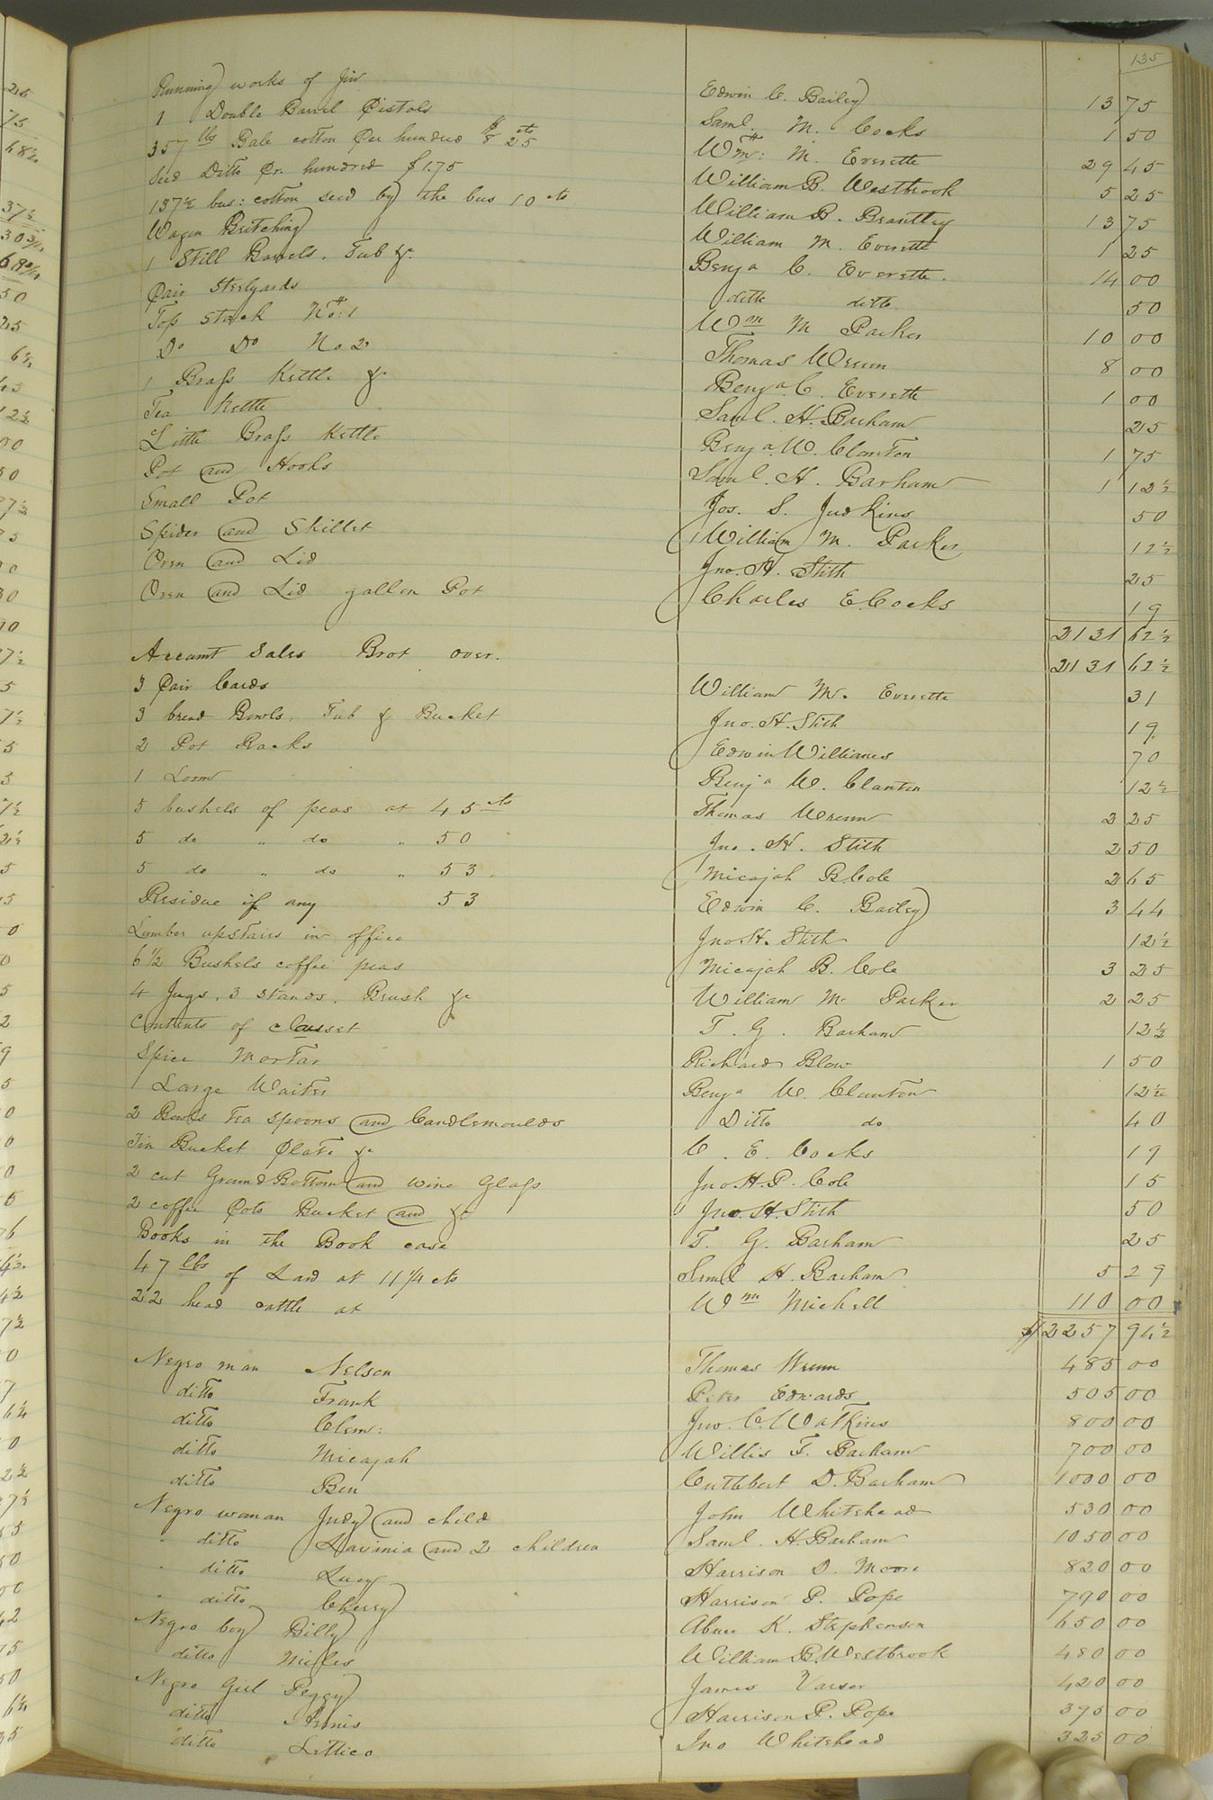 135
Running works of Gin Edwin C. Bailey 13 75
1 Double Barrel Pistols Saml. M. Cocks 1 50
357 lbs Bale cotton Per hundred $8 25 cts Wm: M. Everette 29 45
Seed Ditto Pr. hundred $1.75 William B. Westbrook 5 25
137½ bus: cotton seed by the bus 10 cts William B. Brantley 13 75
Wagon Britching William M. Everette 1 25
1 Still Barrels. Tub &c Benja C. Everette. 14 00
Pair Steelyards ditto ditto 50
Top Stack No: 1 Wm M Parker 10 00
Do Do No 2 Thomas Wrenn 8 00
1 Brass Kettle &c Benja C. Everette 1 00
Tea Kettle Saml. H. Barham 25
Little Brass Kettle Benja W. Clanton 1 75
Pot and Hooks Saml. H. Barham 1 12½
Small Pot Jos. S. Judkins 50
Spider and Skillet William M. Parker 12½
Oven and Lid Jno. H. Stith 25
Oven and Lid gallon Pot Charles E. Cocks 19
2131 62½
Account Sales Brot over. 2131 62½
3 Pair Cards William M. Everette 31
3 bread Bowls, Tub & Bucket Jno. H. Stith 19
2 Pot Racks Edwin Williams 70
1 Loom Benja W. Clanton 12½
5 bushels of peas at 45 cts Thomas Wrenn 2 25
5 do " do " 50 Jno. H. Stith 2 50
5 do " do " 53 Micajah B. Cole 2 65
Residue if any 53 Edwin C. Bailey 3 44
Lumber upstairs in office Jno H. Stith 12½
6½ Bushels coffee peas Micajah B. Cole 3 25
4 Jugs. 3 stands. Brush &c William M. Parker 2 25
Contents of clausset T. G. Barham 12½
Spice Mortar Richard Blow 1 50
1 Large Waiter Benja W. Clanton 12½
2 Bowls tea spoons and Candlemoulds Ditto do 40
Tin Bucket Plate &c C. E. Cocks 19
2 cut Ground Bottom and wine Glass Jno H. P. Cole 15
2 coffee Pots Bucket and &c Jno. H. Stith 50
Books in the Book case T. G. Barham 25
47 lbs of Lard at 11¼ cts Saml H. Barham 5 29
22 head cattle at Wm Michell 110 00
$2257 94½
Negro man Nelson Thomas Wrenn 485 00
ditto Frank Peter Edwards 505 00
ditto Clem: Jno. C. Watkins 800 00
ditto Micajah Willis T. Barham 700 00
ditto Ben Cuthbert D. Barham 1000 00
Negro woman Judy and child John Whitehead 530 00
" ditto Lavinia and 2 children Saml. H. Barham 1050 00
" ditto Lucy Harrison D. Moore 820 00
" ditto Cherry Harrison P. Pope 790 00
Negro boy Billy Abner K. Stephenson 650 00
ditto Miles William B. Westbrook 480 00
Negro Girl Peggy James Varser 420 00
ditto Harrison P. Pope 395 00
ditto Lettice Jno Whitehead 325 00